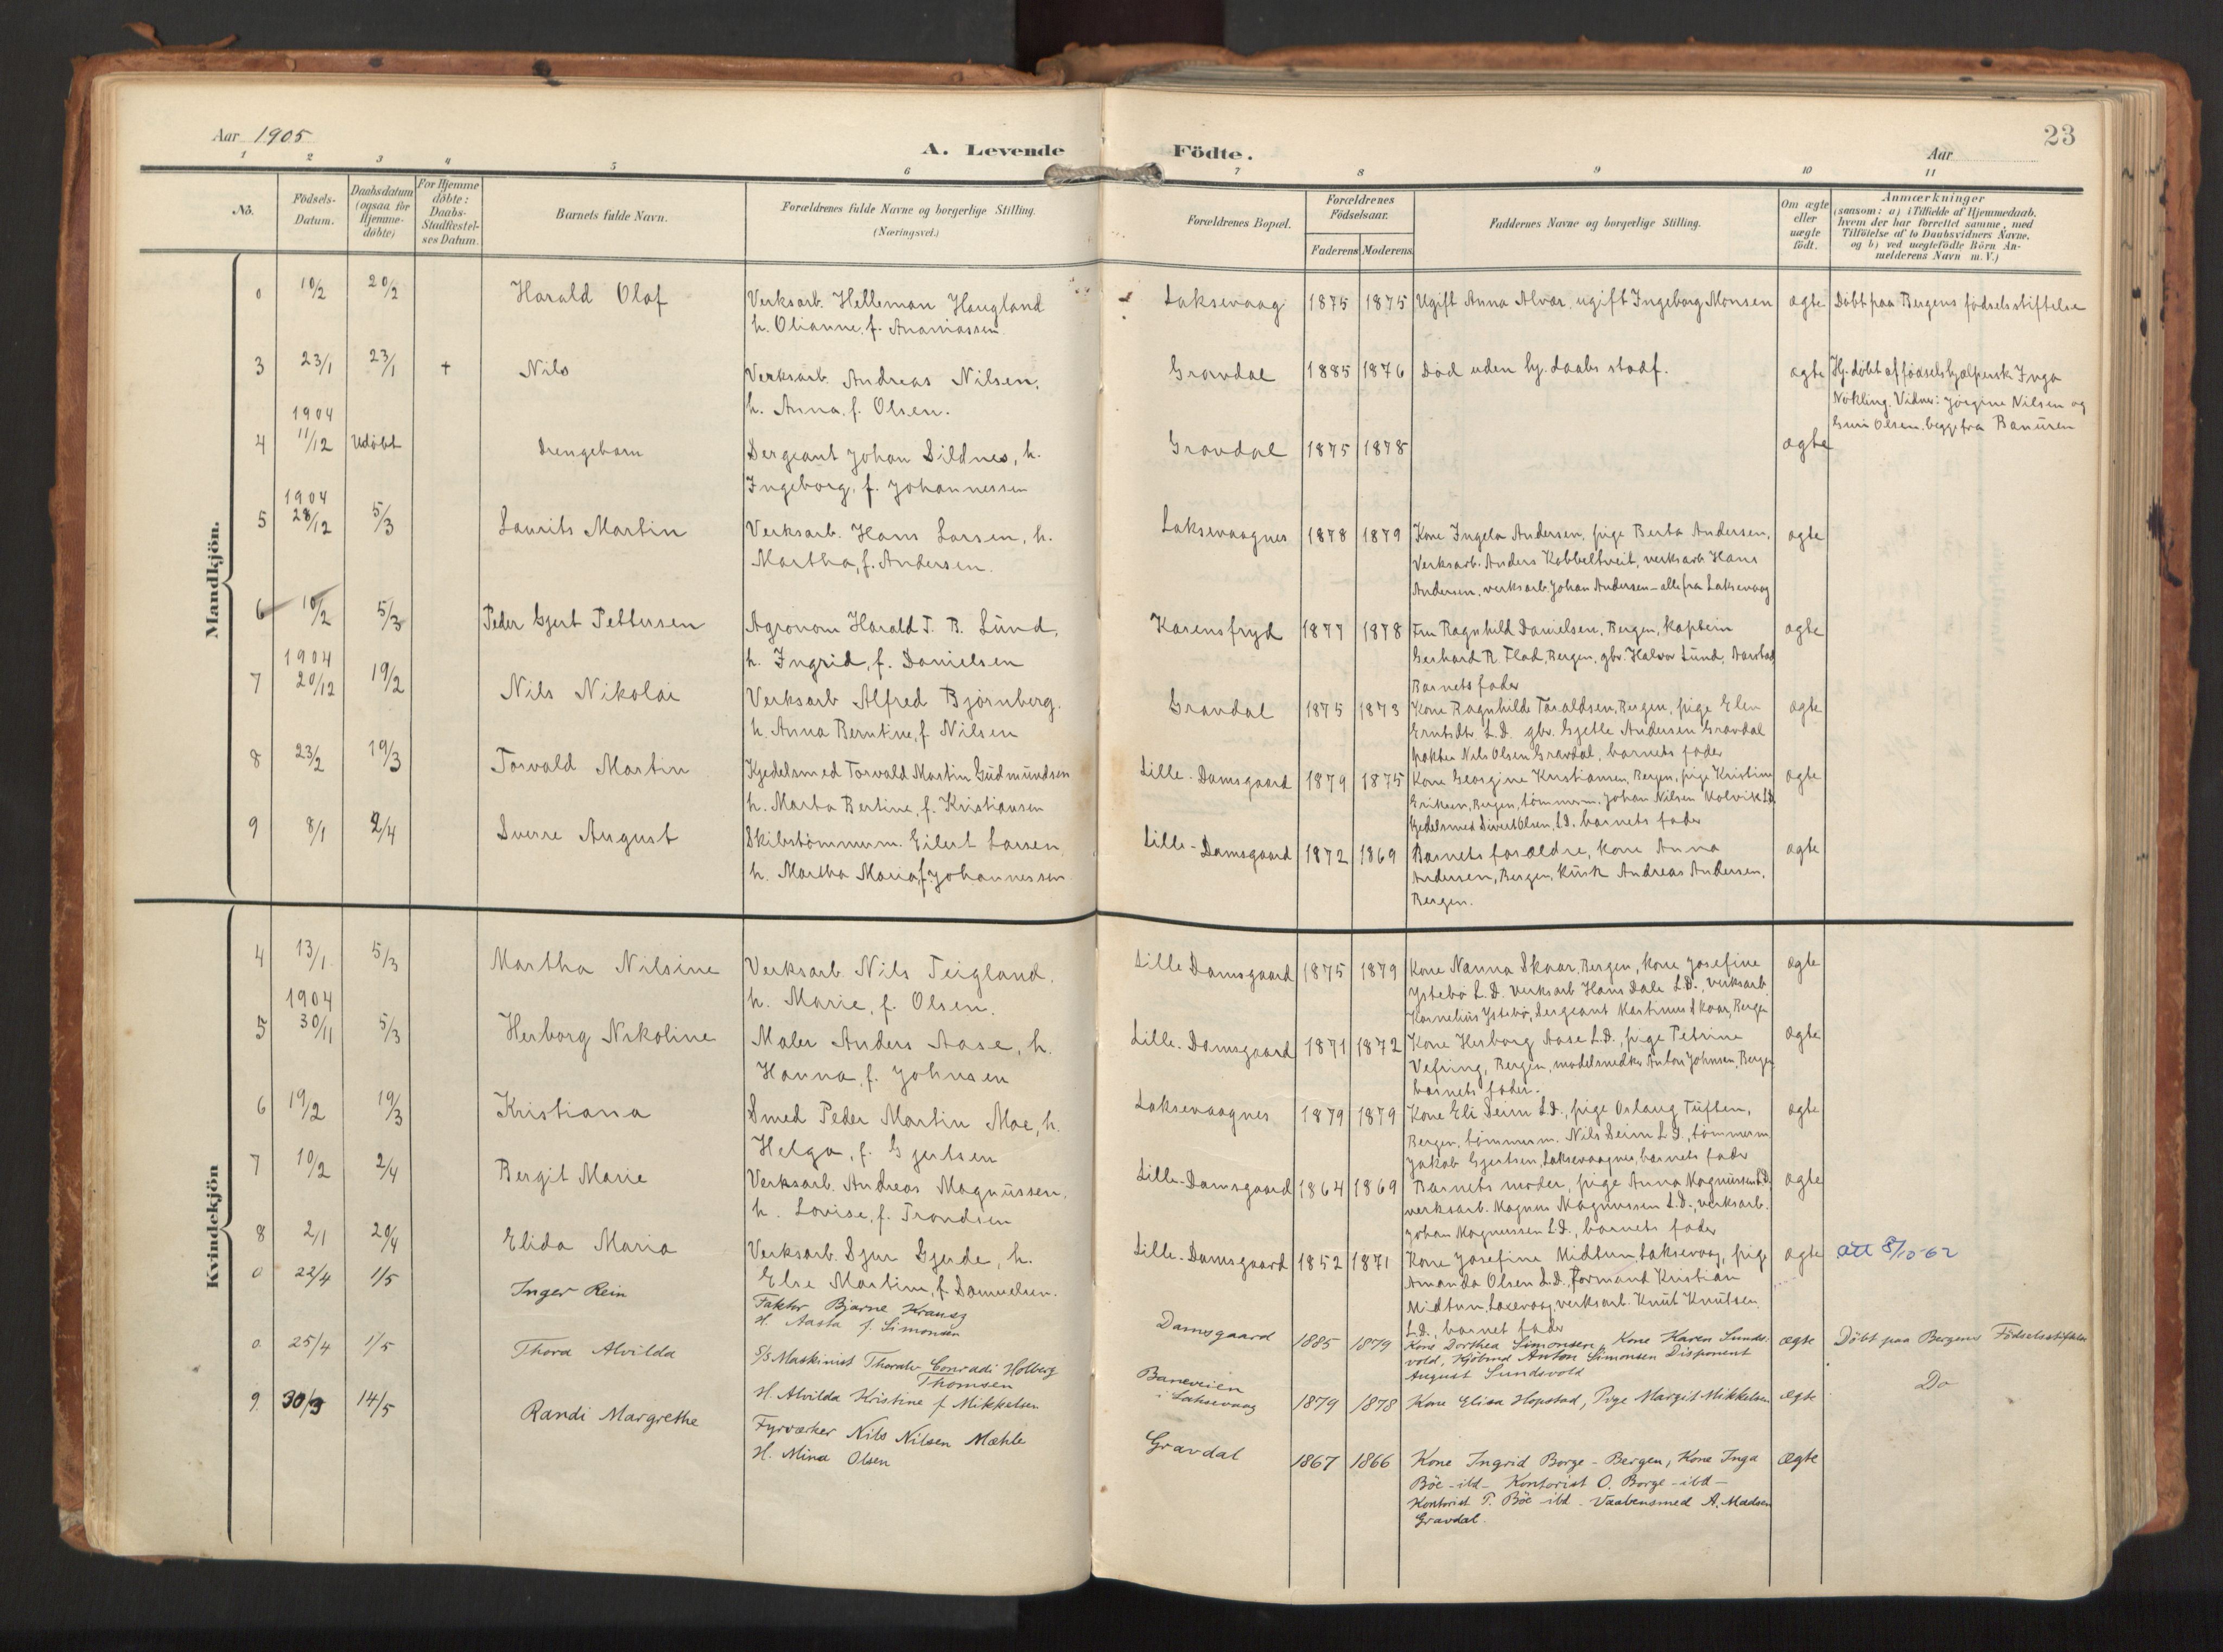 Aar 1905
A. Levende
Födte.
Aar
23
1 2 3 4 5 6 7 8 9 10 11
No.
Födsels-
Datum.
Daabsdatum
(ogsaa for
Hjemme-
döbte)
For Hjemme
döbte:
Daabs-
Stadfæstel-
ses Datum.
Barnets fulde Navn.
Forældrenes fulde Navne og borgerlige Stilling.
(Næringsvei.)
Forældrenes Bopæl.
Forældrenes
Födselsaar.
Faderens Moderens
Faddernes Navne og borgerlige Stilling.
Om ægte
eller
uægte
födt.
Anmærkninger
(saasom: a) i Tilfælde af Hjemmedaab,
hvem der har forrettet samme, med
Tilföielse af to Daabsvidners Navne,
og b) ved uægtefödte Börn An-
melderens Navn m. V.)
Mandkjön.
0 10/2 20/2 Harald Olaf Verksarb. Helleman Haugland Laksevaag 1875 1875 Ugift Anna Alvær, ugift Ingeborg Monsen ægte Döbt paa Bergens födselsstiftelse
h. Olianne, f. Ananiassen.
3 23/1 23/1 + Nils Verksarb. Andreas Nilsen, Gravdal 1885 1876 Död uden hj. daabs stadf. ægte Hj. döbt af födselshjælpersk. Inga
h. Anna, f. Olsen. Nökling. Vidner: Jörgine Nilsen og
Guri Olsen, begge fra Banuren
1904
4 11/12 Udöbt Drengebarn Sergeant Johan Sildnes, h. Gravdal 1875 1878 ægte
Ingeborg, f. Johannessen
1904
5 28/12 5/3 Laurits Martin Verksarb. Hans Larsen, h. Laksevaagnes 1878 1879 Kone Ingela Andersen, pige Berta Andersen, ægte
Martha, f. Andersen. Verksarb. Anders Kobbeltveit, verksarb Hans
Andersen, verksarb. Johan Andersen - alle fra Laksevaag
6 10/2 5/3 Peder Gjert Pettersen Agronom Harald T. R. Lund, Karensfryd 1877 1878 Fru Ragnhild Danielsen, Bergen, kaptein ægte
h. Ingrid, f. Danielsen Gerhard R. Flad, Bergen, gbr. Halvor Lund, Aarstad
Barnets fader
1904
7 20/12 19/2 Nils Nikolai Verksarb Alfred Björnberg. Gravdal 1875 1873 Kone Ragnhilda Taraldsen, Bergen, pige Elen ægte
h. Anna Berntine, f. Nilsen L.D. gbr. Gjetle Andersen Gravdal
Nils Olsen Gravdal, barnets fader
8 23/2 19/3 Torvald Martin Kjedelsmed Torvald Martin Gudmundsen Lille-Damsgaard 1879 1875 Kone Georgine Kristiansen, Bergen, pige Kristine ægte
h. Marta Bertine, f. Kristiansen Eriksen, Bergen, tömmerm. Johan Nilsen L.D.
kjedelsmed Sivert Olsen, L.D. barnets fader
9 8/1 2/4 Sverre August Skibstömmerm. Eilert Larsen, Lille-Damsgaard 1872 1869 Barnets forældre, kone Anna ægte
h. Martha Maria, f. Johannessen. Andersen, Bergen, kusk Andreas Andersen,
Bergen.
Kvindekjön
4 13/1 5/3 Martha Nilsine Verksarb. Nils Teigland, Lille Damsgaard 1875 1879 Kone Nanna Skaar, Bergen, kone Josefine ægte
h. Marie, f. Olsen. Ystebö L.D. verksarb Hans Dale L.D., verksarb
Kornelius Ystebö, Sergeant Martinus Skaar, Bergen
1904
5 30/11 5/3 Herborg Nikoline Maler Anders Aase, h. Lille-Damsgaard 1871 1872 Kone Herborg Aase L.D., pige Petrine ægte
Hanna, f. Johnsen Vefring, Bergen, modelsnedker Anton Johnsen, Bergen
barnets fader.
6 19/2 19/3 Kristiana Smed Peder Martin Moe, h. Laksevaagnes 1879 1879 Kone Eli Seim L.D., pige Oslaug Tuften, ægte
Helga, f. Gjertsen Bergen, tömmerm. Nils Seim L.D., tömmerm
Jakob Gjertsen, Laksevaagnes, barnets fader
7 10/2 2/4 Bergit Marie Verksarb. Andreas Magnussen, Lille-Damsgaard 1864 1869 Barnets moder, pige Anna Magnussen L.D. ægte
h. Lovise, f. Trondsen verksarb. Magnus Magnussen L.D., verksarb.
Johan Magnussen L.D., barnets fader
8 2/1 20/4 Elida Maria Verksarb. Sjur Gjerde, h. Lille-Damsgaard 1852 1871 Kone Josefine Midtun, Laksevaag, pige ægte att 8/10-62
Else Martine, f. Samuelsen. Amanda Olsen L.D., Formand Kristian
Midtun, Laxevaag, verksarb. Knut Knutsen,
L.D., barnet fader
0 22/4 1/5 Inger Rein Faktor Bjarne Krausz Damsgaard 1885 1879 Kone Dorthea Simonsen, Kone Karen Sunds- ægte Döbt paa Bergens Födselsstiftelse
H. Aasta f. Simonsen vold, Kjöbmd Anton Simonsen Disponent
August Sundsvold
0 25/4 1/5 Thora Alvilda S/S Maskinist Thoralv Conradi Holberg Baneveien 1879 1878 Kone Elisa Hopstad, Pige Margit Mikkelsen ægte Do
Thomsen i Laksevaag
H. Alvilda Kristine f. Mikkelsen
9. 30/3 14/5 Randi Margrethe Fyrværker Nils Nilsen Mæhle Gravdal 1867 1866 Kone Ingrid Borge - Bergen, Kone Inga Ægte
H. Mina Olsen Böe - ibd - Kontorist O. Borge - ibd -
Kontorist T. Böe ibd. Vaabensmed A. Madsen
Gravdal.